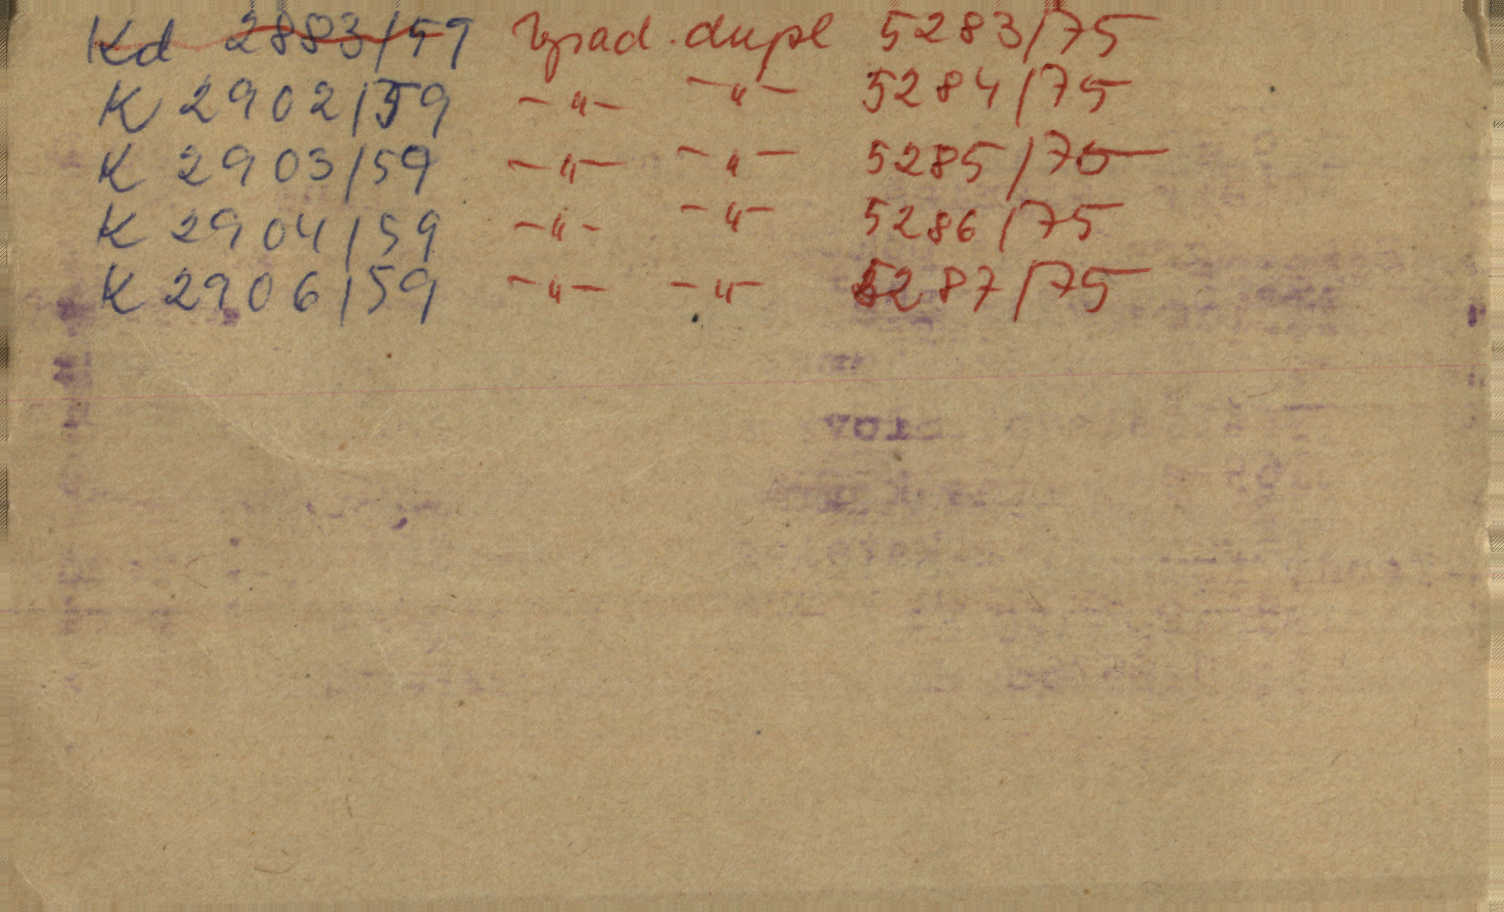 Kd 2883/59 vyrad. dupl 5283/75
K 2902/59 -"- -"- 5284/75
K 2903/59 -"- -"- 5285/75
K 2904/59 -"- -"- 5286/75
K 2906/59 -"- -"- 5287/75